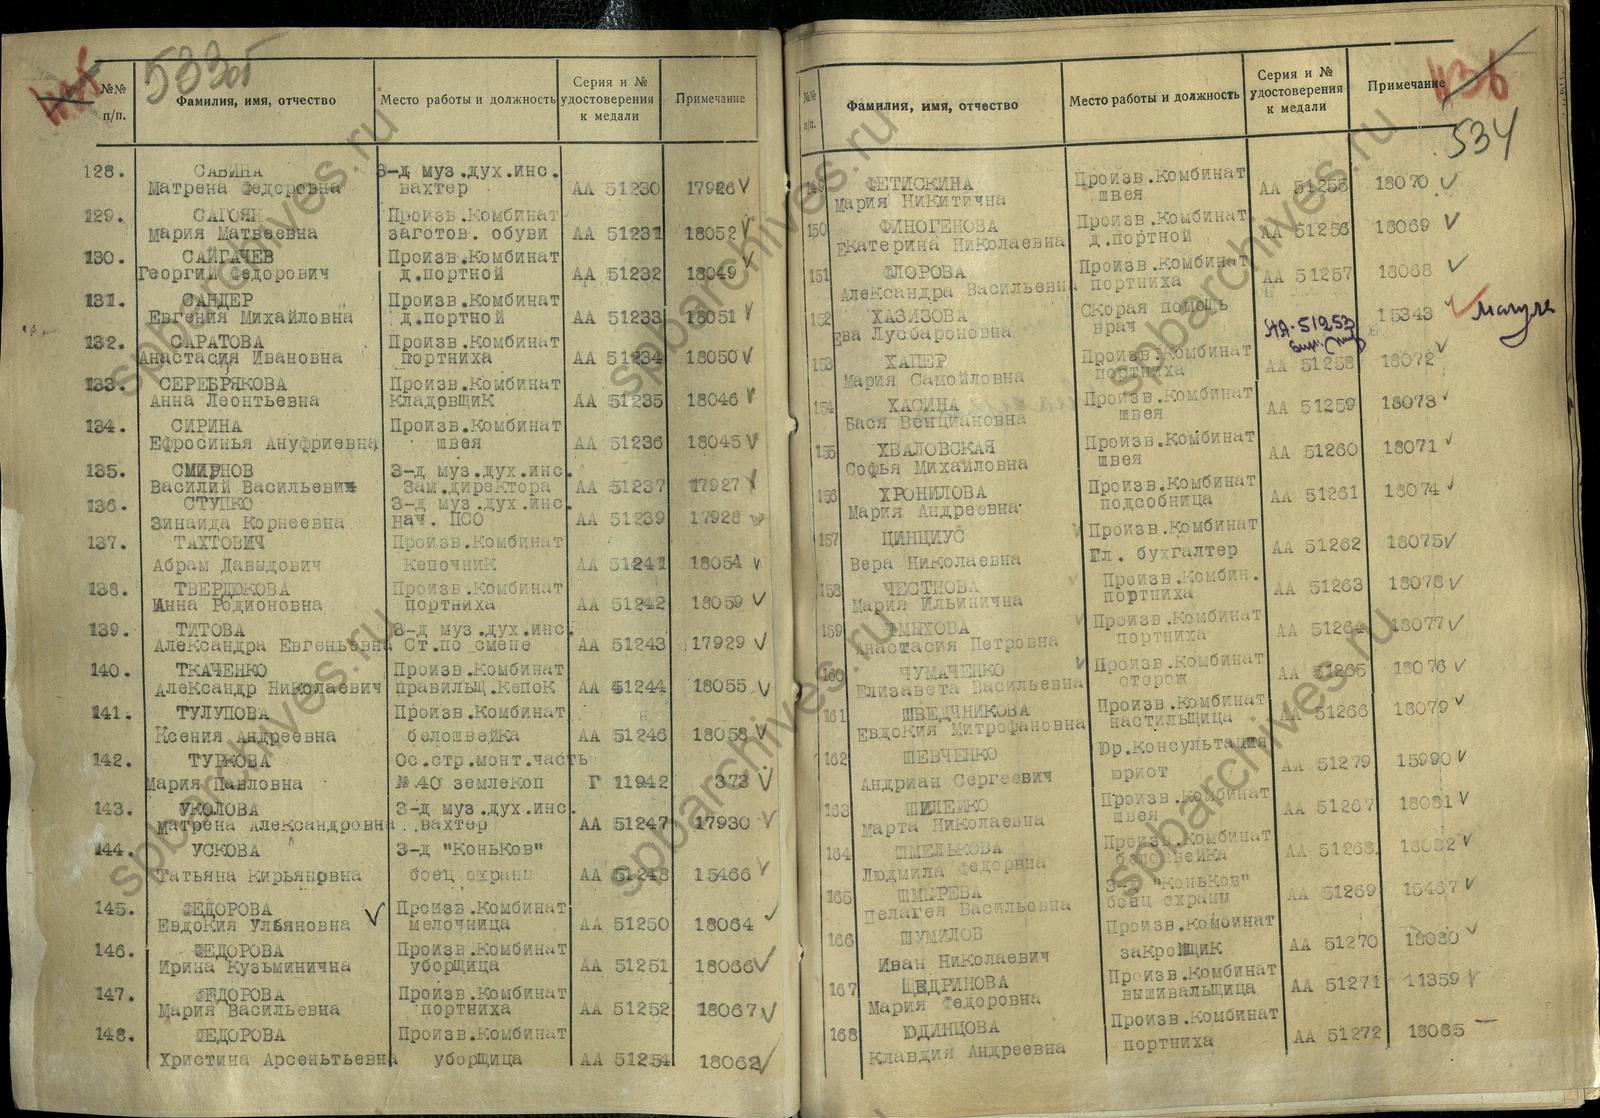 533об
№№ п/п.
Фамилия, имя, отчество
Место работы и должность
Серия и № удостоверения к медали
Примечание
128. САВИНА З-д муз.дух.инс.
Матрена Федоровна вахтер АА 51230 17926
129. САГОЯН Произв.Комбинат
Мария Матвеевна заготов. обуви АА 51231 18052
130. САЙГАЧЕВ Произв.Комбинат
Георгий Федорович д.портной АА 51232 18049
131. САНДЕР Произв.Комбинат
Евгения Михайловна д.портной АА 51233 18051
132. САРАТОВА Произв.Комбинат
Анастасия Ивановна портниха АА 51234 18050
133. СЕРЕБРЯКОВА Произв.Комбинат
Анна Леонтьевна кладовщик АА 51235 18046
134. СИРИНА Произв.Комбинат
Ефросинья Ануфриевна швея АА 51236 18045
135. СМИРНОВ З-д муз.дух.инс.
Василий Васильевич Зам.директора АА 51237 17927
136. СТУПКО З-д муз.дух.инс.
Зинаида Корнеевна нач. ПСО АА 51239 17928
137. ТАХТОВИЧ Произв.Комбинат
Абрам Давыдович Кепочник АА 51241 18054
138. ТВЕРДЮКОВА Произв.Комбинат
Инна Родионовна портниха АА 51242 18059
139. ТИТОВА З-д муз.дух.инс.
Александра Евгеньевна Ст.по смене АА 51243 17929
140. ТКАЧЕНКО Произв.Комбинат
Александр Николаевич правильщ.кепок АА 51244 18055
141. ТУЛУПОВА Произв.Комбинат
Ксения Андреевна белошвейка АА 51246 18058
142. ТУРКОВА Ос.стр.монт.часть
Мария Павловна № 40 землекоп Г 11942 373
143. УКОЛОВА З-д муз.дух.инс.
Матрена Александровна вахтер АА 51247 17930
144. УСКОВА З-д "Коньков"
Татьяна Кирьяновна боец охраны АА 51248 15466
145. ФЕДОРОВА Произв.Комбинат
Евдокия Ульяновна мелочница АА 51250 18064
146. ФЕДОРОВА Произв.Комбинат
Ирина Кузьминична уборщица АА 51251 18066
147. ФЕДОРОВА Произв.Комбинат
Мария Васильевна портниха АА 51252 18067
148. ФЕДОРОВА Произв.Комбинат
Христина Арсентьевна уборщица АА 51254 18062
534
№№ п/п.
Фамилия, имя, отчество
Место работы и должность
Серия и № удостоверения к медали
Примечание
149 ФЕТИСКИНА Произв.Комбинат
Мария Никитична швея АА 51255 18070
150 ФИНОГЕНОВА Произв.Комбинат
Екатерина Николаевна д.портной АА 51256 18069
151 ФЛОРОВА Произв.Комбинат
Александра Васильевна портниха АА 51257 18068
152 ХАЗИЗОВА Скорая помощь
Ева Лусбароновна врач АА-51253 15343
153 ХАПЕР Произв.Комбинат
Мария Самойловна портниха АА 51258 18072
154 ХАСИНА Произв.Комбинат
Бася Венциановна швея АА 51259 18073
155 ХВАЛОВСКАЯ Произв.Комбинат
Софья Михайловна швея АА 51260 18071
156 ХРОНИЛОВА Произв.Комбинат
Мария Андреевна подсобница АА 51261 18074
157 ЦИНЦИУС Произв.Комбинат
Вера Николаевна Гл. бухгалтер АА 51262 18075
158 ЧЕСТНОВА Произв.Комбин.
Мария Ильинична портниха АА 51263 18078
159 ЧМЫХОВА Произв.Комбинат
Анастасия Петровна портниха АА 51264 18077
160 ЧУМАЧЕНКО Произв.Комбинат
Елизавета Васильевна сторож АА 51265 18076
161 ШВЕДЧИКОВА Произв.Комбинат
Евдокия Митрофановна настильщица АА 51266 18079
162 ШЕВЧЕНКО Юр.Консультация
Андриан Сергеевич юрист АА 51279 15990
163 ШИЛЕЙКО Произв.Комбинат
Марта Николаевна швея АА 51267 18081
164 ШМЕЛЬКОВА Произв.Комбинат
Людмила Федоровна белошвейка АА 51268 18082
165 ШМЫРЕВА З-д "Коньков"
Пелагея Васильевна боец охраны АА 51269 15467
166 ШУМИЛОВ Произв.Комбинат
Иван Николаевич закройщик АА 51270 18080
167 ЩЕДРИНОВА Произв.Комбинат
Мария Федоровна вышивальщица АА 51271 11359
168 ЮДИНЦОВА Произв.Комбинат
Клавдия Андреевна портниха АА 51272 18085
spbarchives.ru